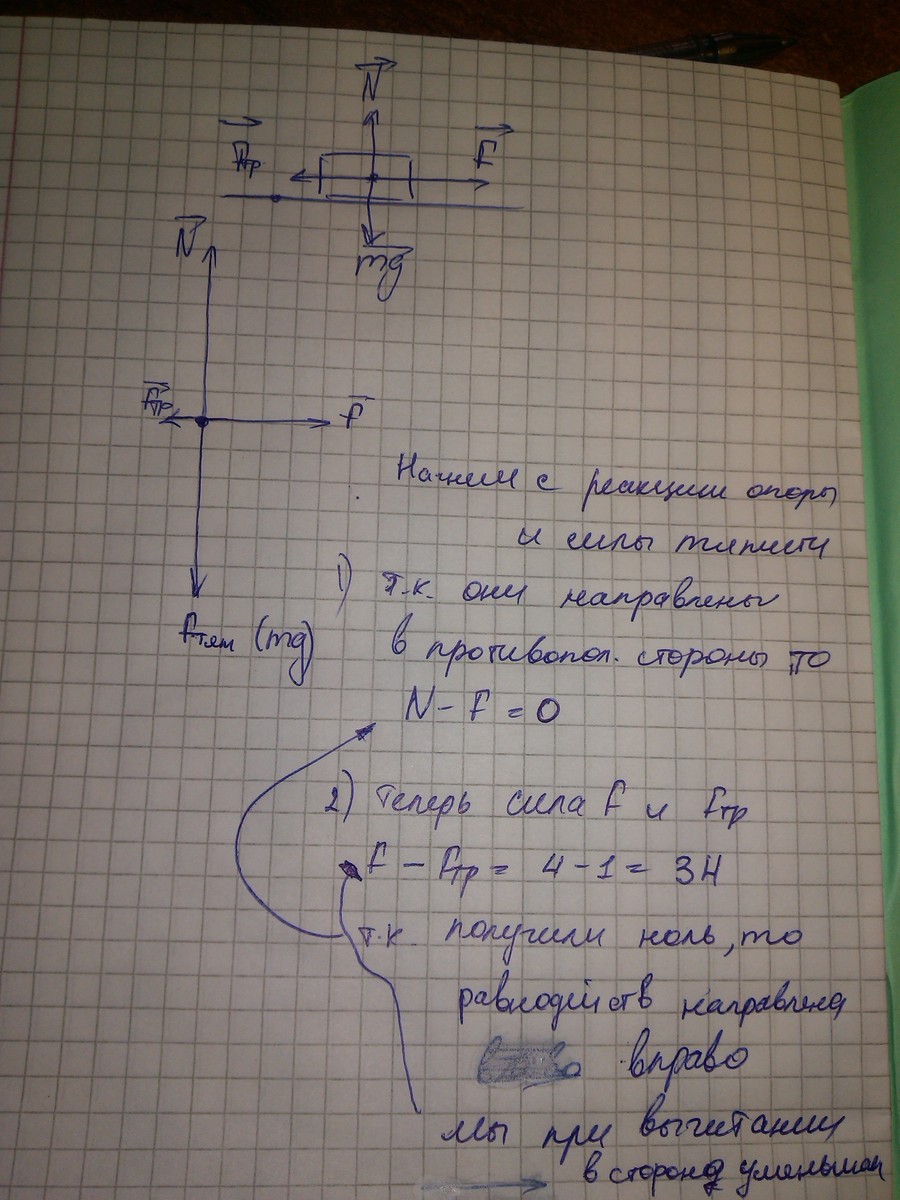 N
Fтр
F
mg
N
Fтр
F
Fтяж (mg)
Начнем с реакции опоры
и силы тяжести
1) т.к. они направлены
в противопол. стороны то
N - F = 0
2) Теперь сила F и Fтр
F - Fтр = 4 - 1 = 3Н
т.к. получили ноль, то
равнодейств направлена
вправо
Мы при вычитании
в сторону уменьшаем